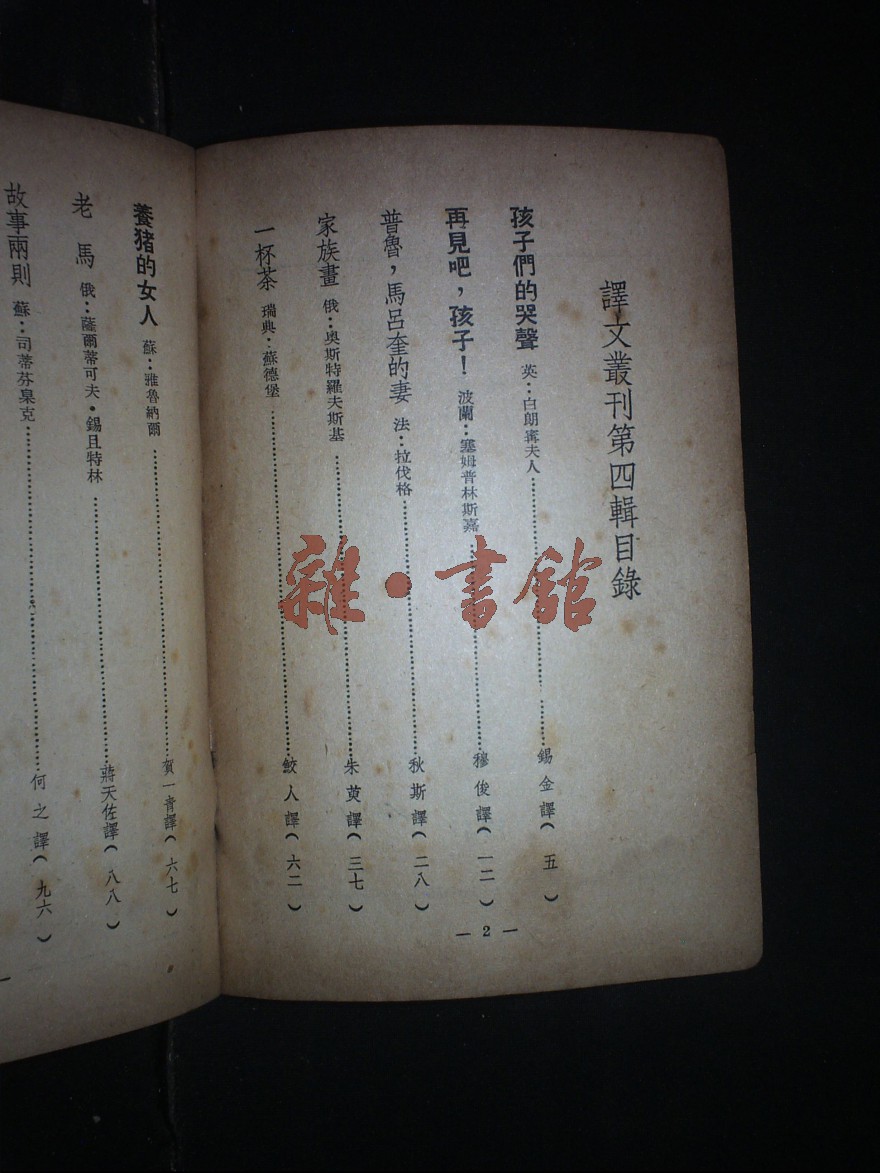 譯文叢刊第四輯目錄
孩子們的哭聲 英：白朗寗夫人………錫金譯（五）
再見吧，孩子！ 波蘭：塞姆普林斯嘉………穆俊譯（一二）
普魯，馬呂奎的妻 法：拉伐格………秋斯譯（二八）
家族畫 俄：奥斯特羅夫斯基………朱萸譯（三七）
一杯茶 瑞典：蘇德堡………鮫人譯（六二）
— 2 —
養猪的女人 蘇：雅魯納爾………賀一青譯（六七）
老馬 俄：薩爾蒂可夫・錫且特林………蔣天佐譯（八八）
故事兩則 蘇：司蒂芬臬克………何之譯（九六）
雜・書館